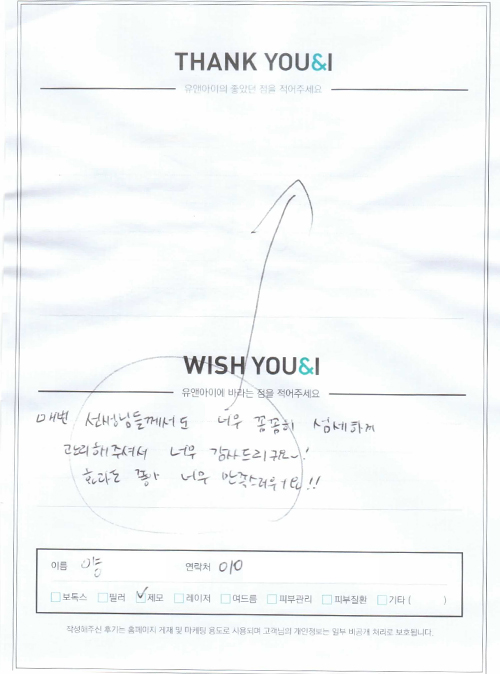 THANK YOU&I
유앤아이의 좋았던 점을 적어주세요
WISH YOU&I
유앤아이에 바라는 점을 적어주세요
매번 선생님들께서도 너무 꼼꼼히 섬세하게
관리해주셔서 너무 감사드리구요~!
효과도 좋아 너무 만족스러워요!!
이름 이 연락처 010
보톡스 필러 제모 레이저 여드름 피부관리 피부질환 기타 ( )
작성해주신 후기는 홈페이지 게재 및 마케팅 용도로 사용되며 고객님의 개인정보는 일부 비공개 처리로 보호됩니다.